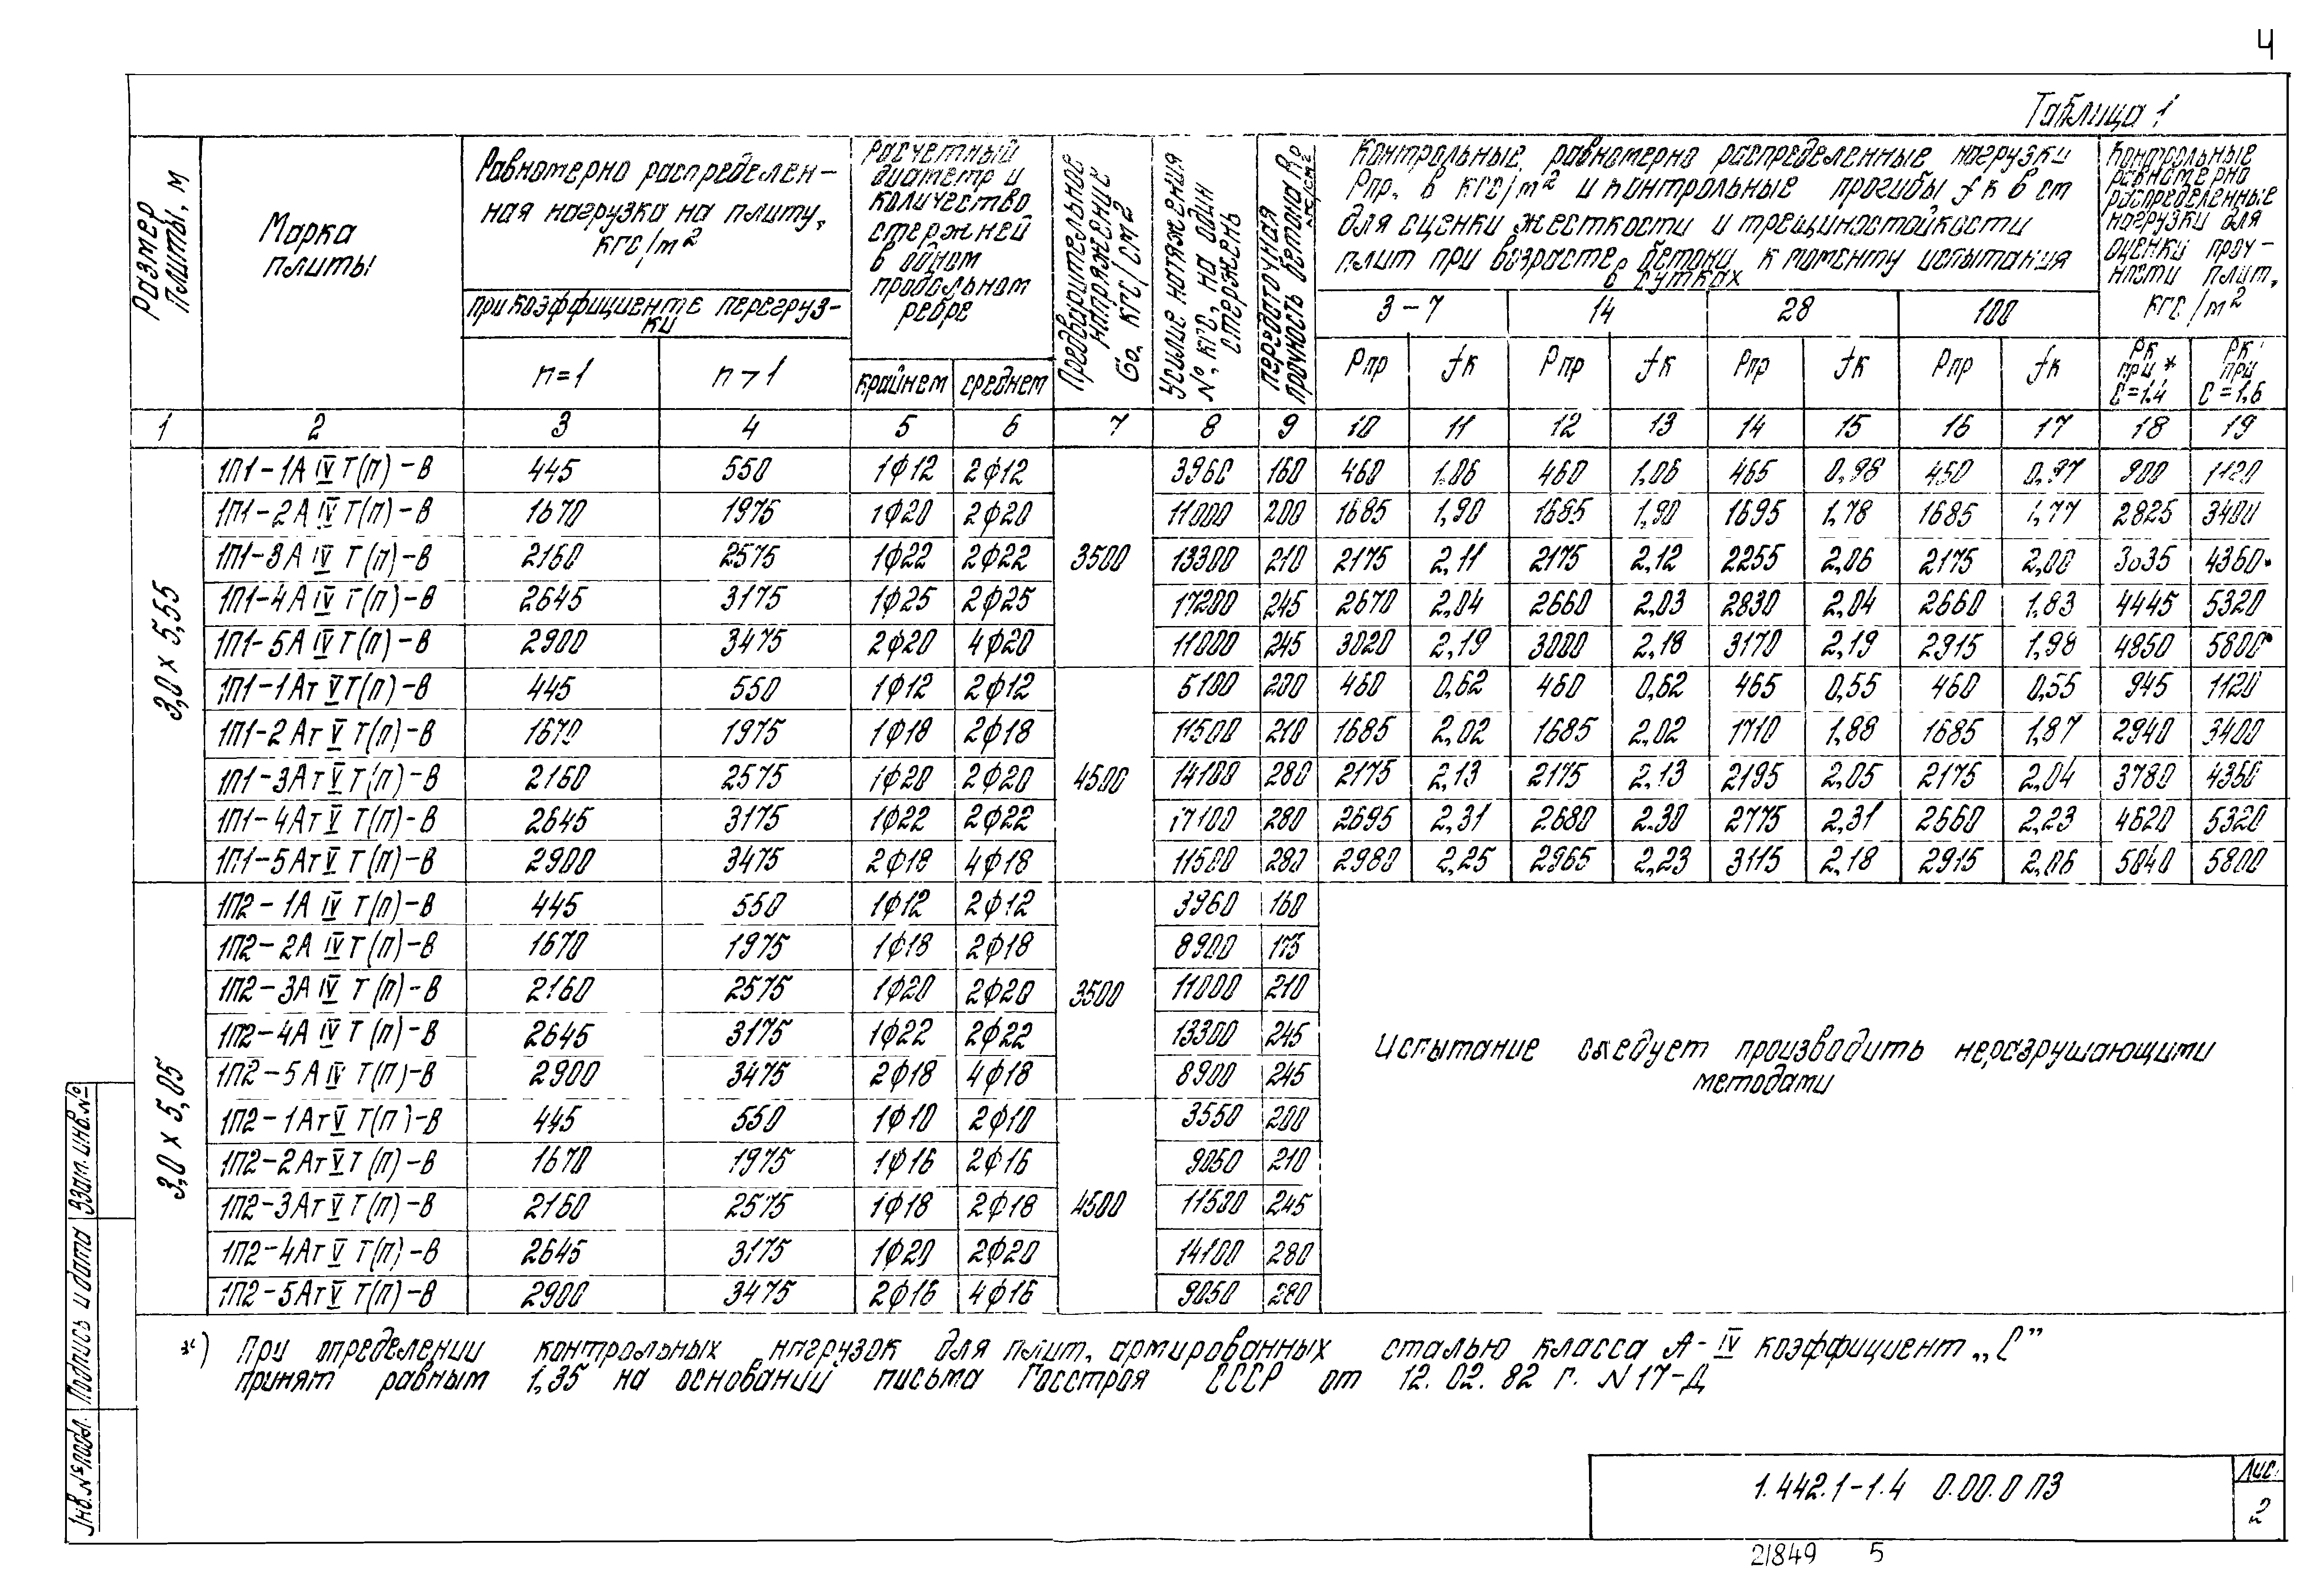 4
Таблица 1
Размер плиты, м
Марка плиты
Равномерно распределен-
ная нагрузка на плиту,
кгс/м2
при коэффициенте перегруз-
ки
n=1
n>1
Расчетный
диаметр и
количество
стержней
в одном
продольном
ребре
крайнем
среднем
Предварительное напряжение
Gо, кгс/см2
Усилие натяжения
N, кгс, на один
стержень
передаточная
прочность бетона Rр
кгс/см2
Контрольные равномерно распределенные нагрузки
Рпр, в кгс/м2 и контрольные прогибы fк в см
для оценки жесткости и трещиностойкости
плит при возрасте бетона к моменту испытания
в сутках
3-7 14 28 100
Рпр fк Рпр fк Рпр fк Рпр fк
Контрольные
равномерно
распределенные
нагрузки для
оценки проч-
ности плит,
кгс/м2
Рк при *
С=1.4
Рк при
С=1,6
1 2 3 4 5 6 7 8 9 10 11 12 13 14 15 16 17 18 19
3,0 х 5,55
1П1-1А IV Т(п)-В 445 550 1ф12 2ф12 3960 160 460 1.06 460 1,06 465 0,98 450 0,97 900 1120
1П1-2А IV Т(п)-В 1670 1975 1ф20 2ф20 11000 200 1685 1,90 1685 1,90 1695 1,78 1685 1,77 2825 3400
1П1-3А IV Т(п)-В 2160 2575 1ф22 2ф22 3500 13300 210 2175 2,11 2175 2,12 2255 2,06 2175 2,00 3635 4360
1П1-4А IV Т(п)-В 2645 3175 1ф25 2ф25 17200 245 2670 2,04 2660 2,03 2830 2,04 2660 1,83 4445 5320
1П1-5А IV Т(п)-В 2900 3475 2ф20 4ф20 11000 245 3020 2,19 3000 2,18 3170 2,19 2915 1,98 4850 5800
1П1-1Ат V Т(п)-В 445 550 1ф12 2ф12 5100 200 460 0,62 460 0,62 465 0,55 460 0,55 945 1120
1П1-2Ат V Т(п)-В 1670 1975 1ф18 2ф18 11500 210 1685 2,02 1685 2,02 1710 1,88 1685 1,87 2940 3400
1П1-3Ат V Т(п)-В 2160 2575 1ф20 2ф20 4500 14100 280 2175 2,13 2175 2,13 2195 2,05 2175 2,04 3780 4360
1П1-4Ат V Т(п)-В 2645 3175 1ф22 2ф22 17100 280 2695 2,31 2680 2.30 2775 2,31 2660 2,23 4620 5320
1П1-5Ат V Т(п)-В 2900 3475 2ф18 4ф18 11500 280 2980 2,25 2965 2,23 3115 2,18 2915 2,06 5040 5800
3,0 х 5,05
1П2-1А IV Т(п)-В 445 550 1ф12 2ф12 3960 160
1П2-2А IV Т(п)-В 1670 1975 1ф18 2ф18 8900 175
1П2-3А IV Т(п)-В 2160 2575 1ф20 2ф20 3500 11000 210
1П2-4А IV Т(п)-В 2645 3175 1ф22 2ф22 13300 245
1П2-5А IV Т(п)-В 2900 3475 2ф18 4ф18 8900 245
1П2-1Ат V Т(п)-В 445 550 1ф10 2ф10 3550 200
1П2-2Ат V Т(п)-В 1670 1975 1ф16 2ф16 9050 210
1П2-3Ат V Т(п)-В 2160 2575 1ф18 2ф18 4500 11500 245
1П2-4Ат V Т(п)-В 2645 3175 1ф20 2ф20 14100 280
1П2-5Ат V Т(п)-В 2900 3475 2ф16 4ф16 9050 280
Испытание следует производить неразрушающими
методами
*) При определении контрольных нагрузок для плит, армированных сталью класса А-IV коэффициент „С”
принят равным 1,35 на основании письма Госстроя СССР от 12.02.82 г. N 17-Д
Инв.№ подл. Подпись и дата Взам.инв.№
1.442.1-1.4 0.00.0 ПЗ
Лис.
2
21849 5